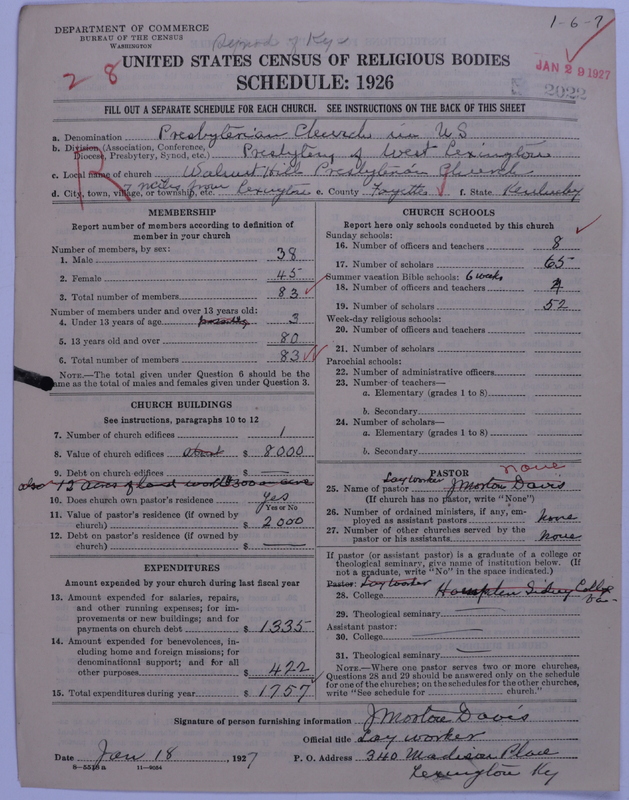 1-6-7
DEPARTMENT OF COMMERCE
BUREAU OF THE CENSUS
WASHINGTON
Synod of Ky.
28
UNITED STATES CENSUS OF RELIGIOUS BODIES
JAN 29 1927
SCHEDULE: 1926
2022
FILL OUT A SEPARATE SCHEDULE FOR EACH CHURCH. SEE INSTRUCTIONS ON THE BACK OF THIS SHEET
a. Denomination Presbyterian Church in U S
b. Division (Association, Conference, Diocese, Presbytery, Synod, etc.) Presbytery of West Lexington
R
c. Local name of church Walnut Hill Presbyterian Church
d. City, town, village, or township, etc. 7 miles from Lexington e. County Fayette f. State Kentucky
MEMBERSHIP
Report number of members according to definition of
member in your church
Number of members, by sex:
1. Male 38
2. Female 45
3. Total number of members 83
Number of members under and over 13 years old:
4. Under 13 years of age 3
5. 13 years old and over 80
6. Total number of members 83
NOTE.—The total given under Question 6 should be the
same as the total of males and females given under Question 3.
CHURCH BUILDINGS
See instructions, paragraphs 10 to 12
7. Number of church edifices 1
8. Value of church edifices about $ 8000
9. Debt on church edifices $ —
also 12 acres of land worth 300 a acre
10. Does church own pastor's residence yes
Yes or No
11. Value of pastor's residence (if owned by
church) $ 2000
12. Debt on pastor's residence (if owned by
church) $ —
EXPENDITURES
Amount expended by your church during last fiscal year
13. Amount expended for salaries, repairs,
and other running expenses; for im-
provements or new buildings; and for
payments on church debt $ 1335
14. Amount expended for benevolences, in-
cluding home and foreign missions; for
denominational support; and for all
other purposes $ 422
15. Total expenditures during year $ 1757
CHURCH SCHOOLS
Report here only schools conducted by this church
Sunday schools:
16. Number of officers and teachers 8
17. Number of scholars 65
Summer vacation Bible schools: 6 weeks
18. Number of officers and teachers
19. Number of scholars 52
Week-day religious schools:
20. Number of officers and teachers
21. Number of scholars
Parochial schools:
22. Number of administrative officers
23. Number of teachers—
a. Elementary (grades 1 to 8)
b. Secondary
24. Number of scholars—
a. Elementary (grades 1 to 8)
b. Secondary
PASTOR none
Lay worker
25. Name of pastor J Morton Davis
(If church has no pastor, write "None")
26. Number of ordained ministers, if any, em-
ployed as assistant pastors none
27. Number of other churches served by the
pastor or his assistants none
If pastor (or assistant pastor) is a graduate of a college or
theological seminary, give name of institution below. (If
not a graduate, write "No" in the space indicated.)
Pastor: Lay worker
28. College Hampden Sidney College
Va-
29. Theological seminary
Assistant pastor:
30. College
31. Theological seminary
NOTE.—Where one pastor serves two or more churches,
Questions 28 and 29 should be answered only on the schedule
for one of the churches; on the schedules for the other churches,
write "See schedule for church."
Signature of person furnishing information J Morton Davis
Official title Lay worker
Date Jan 18, 1927 P. O. Address 340 Madison Place
8-5518 a 11-9084
Lexington Ky